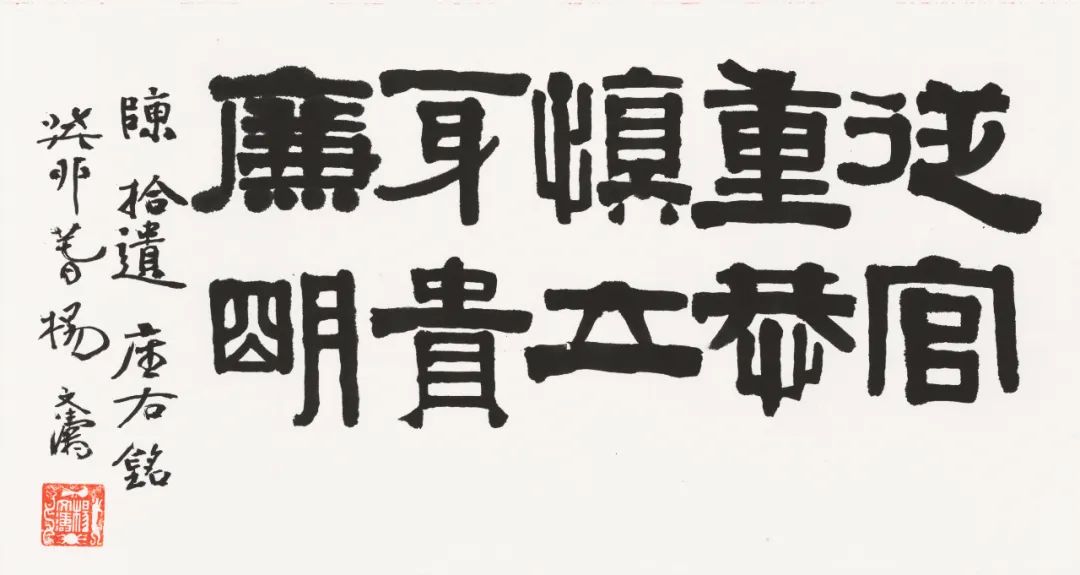 從官
重恭
慎立
身貴
廉明
陳拾遺座右銘
癸卯春楊文濤